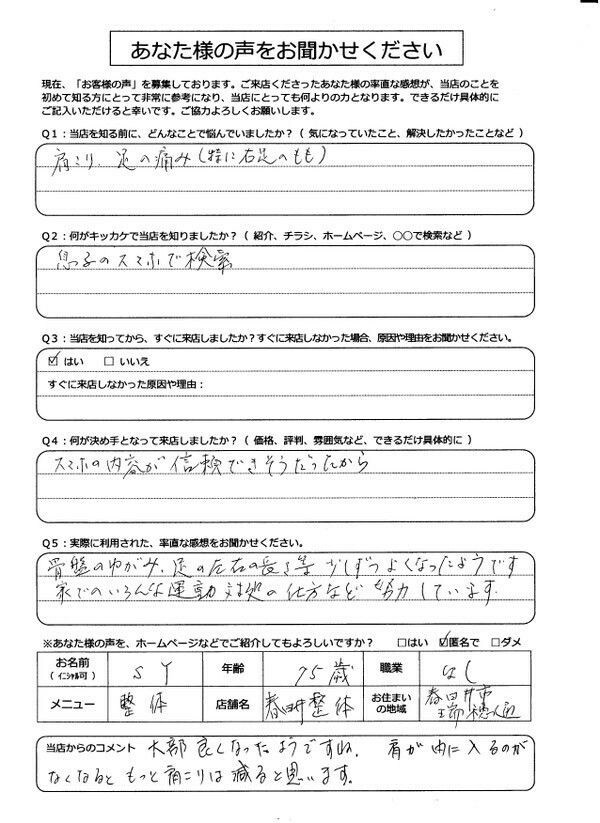 あなた様の声をお聞かせください
現在、「お客様の声」を募集しております。ご来店くださったあなた様の率直な感想が、当店のことを
初めて知る方にとって非常に参考になり、当店にとっても何よりの力となります。できるだけ具体的に
ご記入いただけると幸いです。ご協力よろしくお願いします。
Q1：当店を知る前に、どんなことで悩んでいましたか？（ 気になっていたこと、解決したかったことなど ）
肩こり、足の痛み（特に右足のもも）
Q2：何がキッカケで当店を知りましたか？（ 紹介、チラシ、ホームページ、〇〇で検索など ）
息子のスマホで検索
Q3：当店を知ってから、すぐに来店しましたか？すぐに来店しなかった場合、原因や理由をお聞かせください。
☑ はい　□ いいえ
すぐに来店しなかった原因や理由：
Q4：何が決め手となって来店しましたか？（ 価格、評判、雰囲気など、できるだけ具体的に ）
スマホの内容が信頼できそうだったから
Q5：実際に利用された、率直な感想をお聞かせください。
骨盤のゆがみ、足の左右の長さ等 少しずつよくなったようです
家でのいろんな運動 対処の仕方など 努力しています.
※あなた様の声を、ホームページなどでご紹介してもよろしいですか？　□はい　☑匿名で　□ダメ
お名前（ イニシャル可 ）　S Y　年齢　75歳　職業　なし
メニュー　整体　店舗名　春日井整体　お住まいの地域　春日井市瑞穂通
当店からのコメント　大部 良くなったようですね。　肩が内に入るのが
なくなると もっと肩こりは減ると思います。